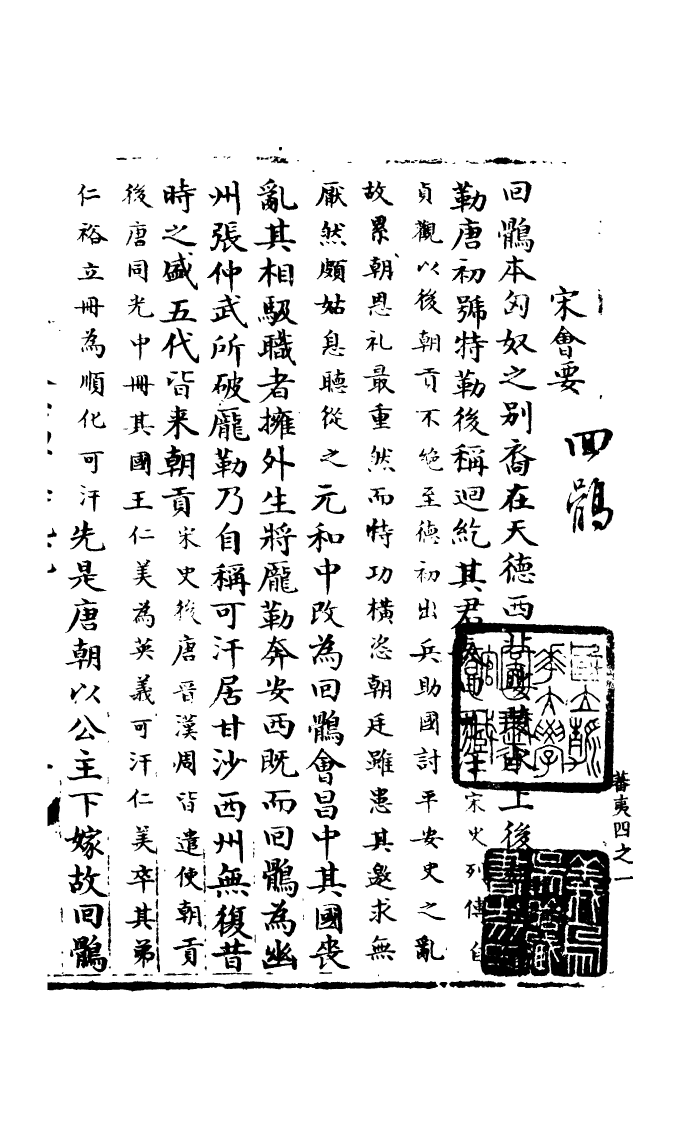 蕃夷四之一
宋會要
回鶻
回鶻本匈奴之別裔在天德西北娑陵水上後
勒唐初號特勒後稱迴紇其君宋史列傳自
貞觀以後朝貢不絶至德初出兵助國討平安史之亂
故累朝恩礼最重然而恃功橫恣朝廷雖患其邀求無
厭然頗姑息聽從之元和中改為回鶻會昌中其國喪
亂其相馺職者擁外生將龐勒奔安西既而回鶻為幽
州張仲武所破龐勒乃自稱可汗居甘沙西州無復昔
時之盛五代皆来朝貢宋史後唐晉漢周皆遣使朝貢
後唐同光中冊其國王仁美為英義可汗仁美卒其弟
仁裕立冊為順化可汗先是唐朝以公主下嫁故回鶻